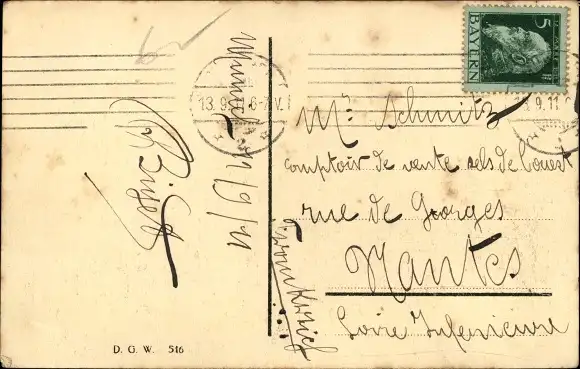 BAYERN 5
13.9.11.6-7 V.
9.11
Mr. Schmitz
comptoir de vente sels de l'ouest
rue de Gorges
Nantes
Loire Inferieure
Frankreich
D. G. W. 516